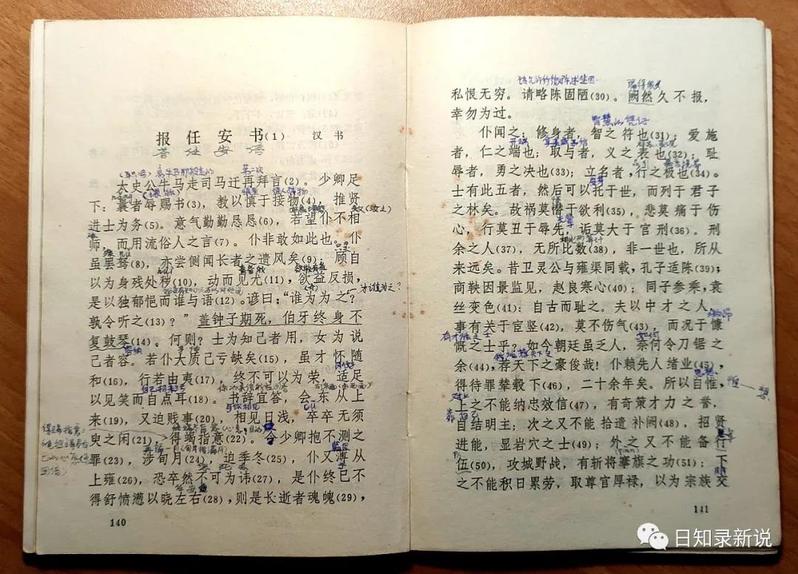 报任安书(1) 汉书
太史公牛马走司马迁再拜言(2)。少卿足
下：曩者辱赐书(3)，教以慎于接物(4)，推贤
进士为务(5)。意气勤勤恳恳(6)，若望仆不相
师，而用流俗人之言(7)。仆非敢如此也。仆
虽罢驽(8)，亦尝侧闻长者之遗风矣(9)。顾自
以为身残处秽(10)，动而见尤(11)，欲益反损，
是以独郁悒而谁与语(12)。谚曰：“谁为为之？
孰令听之(13)？”盖钟子期死，伯牙终身不
复鼓琴(14)。何则？士为知己者用，女为说
己者容。若仆大质已亏缺矣(15)，虽才怀随
和(16)，行若由夷(17)，终不可以为荣，适足
以见笑而自点耳(18)。书辞宜答，会东从上
来(19)，又迫贱事(20)，相见日浅，卒卒无须
臾之闲(21)，得竭指意(22)。今少卿抱不测之
罪(23)，涉旬月(24)，迫季冬(25)，仆又薄从
上雍(26)，恐卒然不可为讳(27)，是仆终已不
得舒愤懑以晓左右(28)，则是长逝者魂魄(29)，
140
私恨无穷。请略陈固陋(30)。阙然久不报，
幸勿为过。
仆闻之：修身者，智之符也(31)；爱施
者，仁之端也(32)；取与者，义之表也(33)；耻
辱者，勇之决也(33)；立名者，行之极也(34)。
士有此五者，然后可以托于世，而列于君子
之林矣。故祸莫憯于欲利(35)，悲莫痛于伤
心，行莫丑于辱先，诟莫大于宫刑(36)。刑
余之人(37)，无所比数(38)，非一世也，所从
来远矣。昔卫灵公与雍渠同载，孔子适陈(39)；
商鞅因景监见，赵良寒心(40)；同子参乘，袁
丝变色(41)：自古而耻之。夫以中才之人，
事有关于宦竖(42)，莫不伤气(43)，而况于慷
慨之士乎？如今朝廷虽乏人，奈何令刀锯之
余(44)，荐天下之豪俊哉！仆赖先人绪业(45)，
得待罪辇毂下(46)，二十余年矣。所以自惟，
上之不能纳忠效信(47)，有奇策才力之誉，
自结明主；次之又不能拾遗补阙(48)，招贤
进能，显岩穴之士(49)；外之又不能备行
伍(50)，攻城野战，有斩将搴旗之功(51)；下
之不能积日累劳，取尊官厚禄，以为宗族交
141
日知录新说